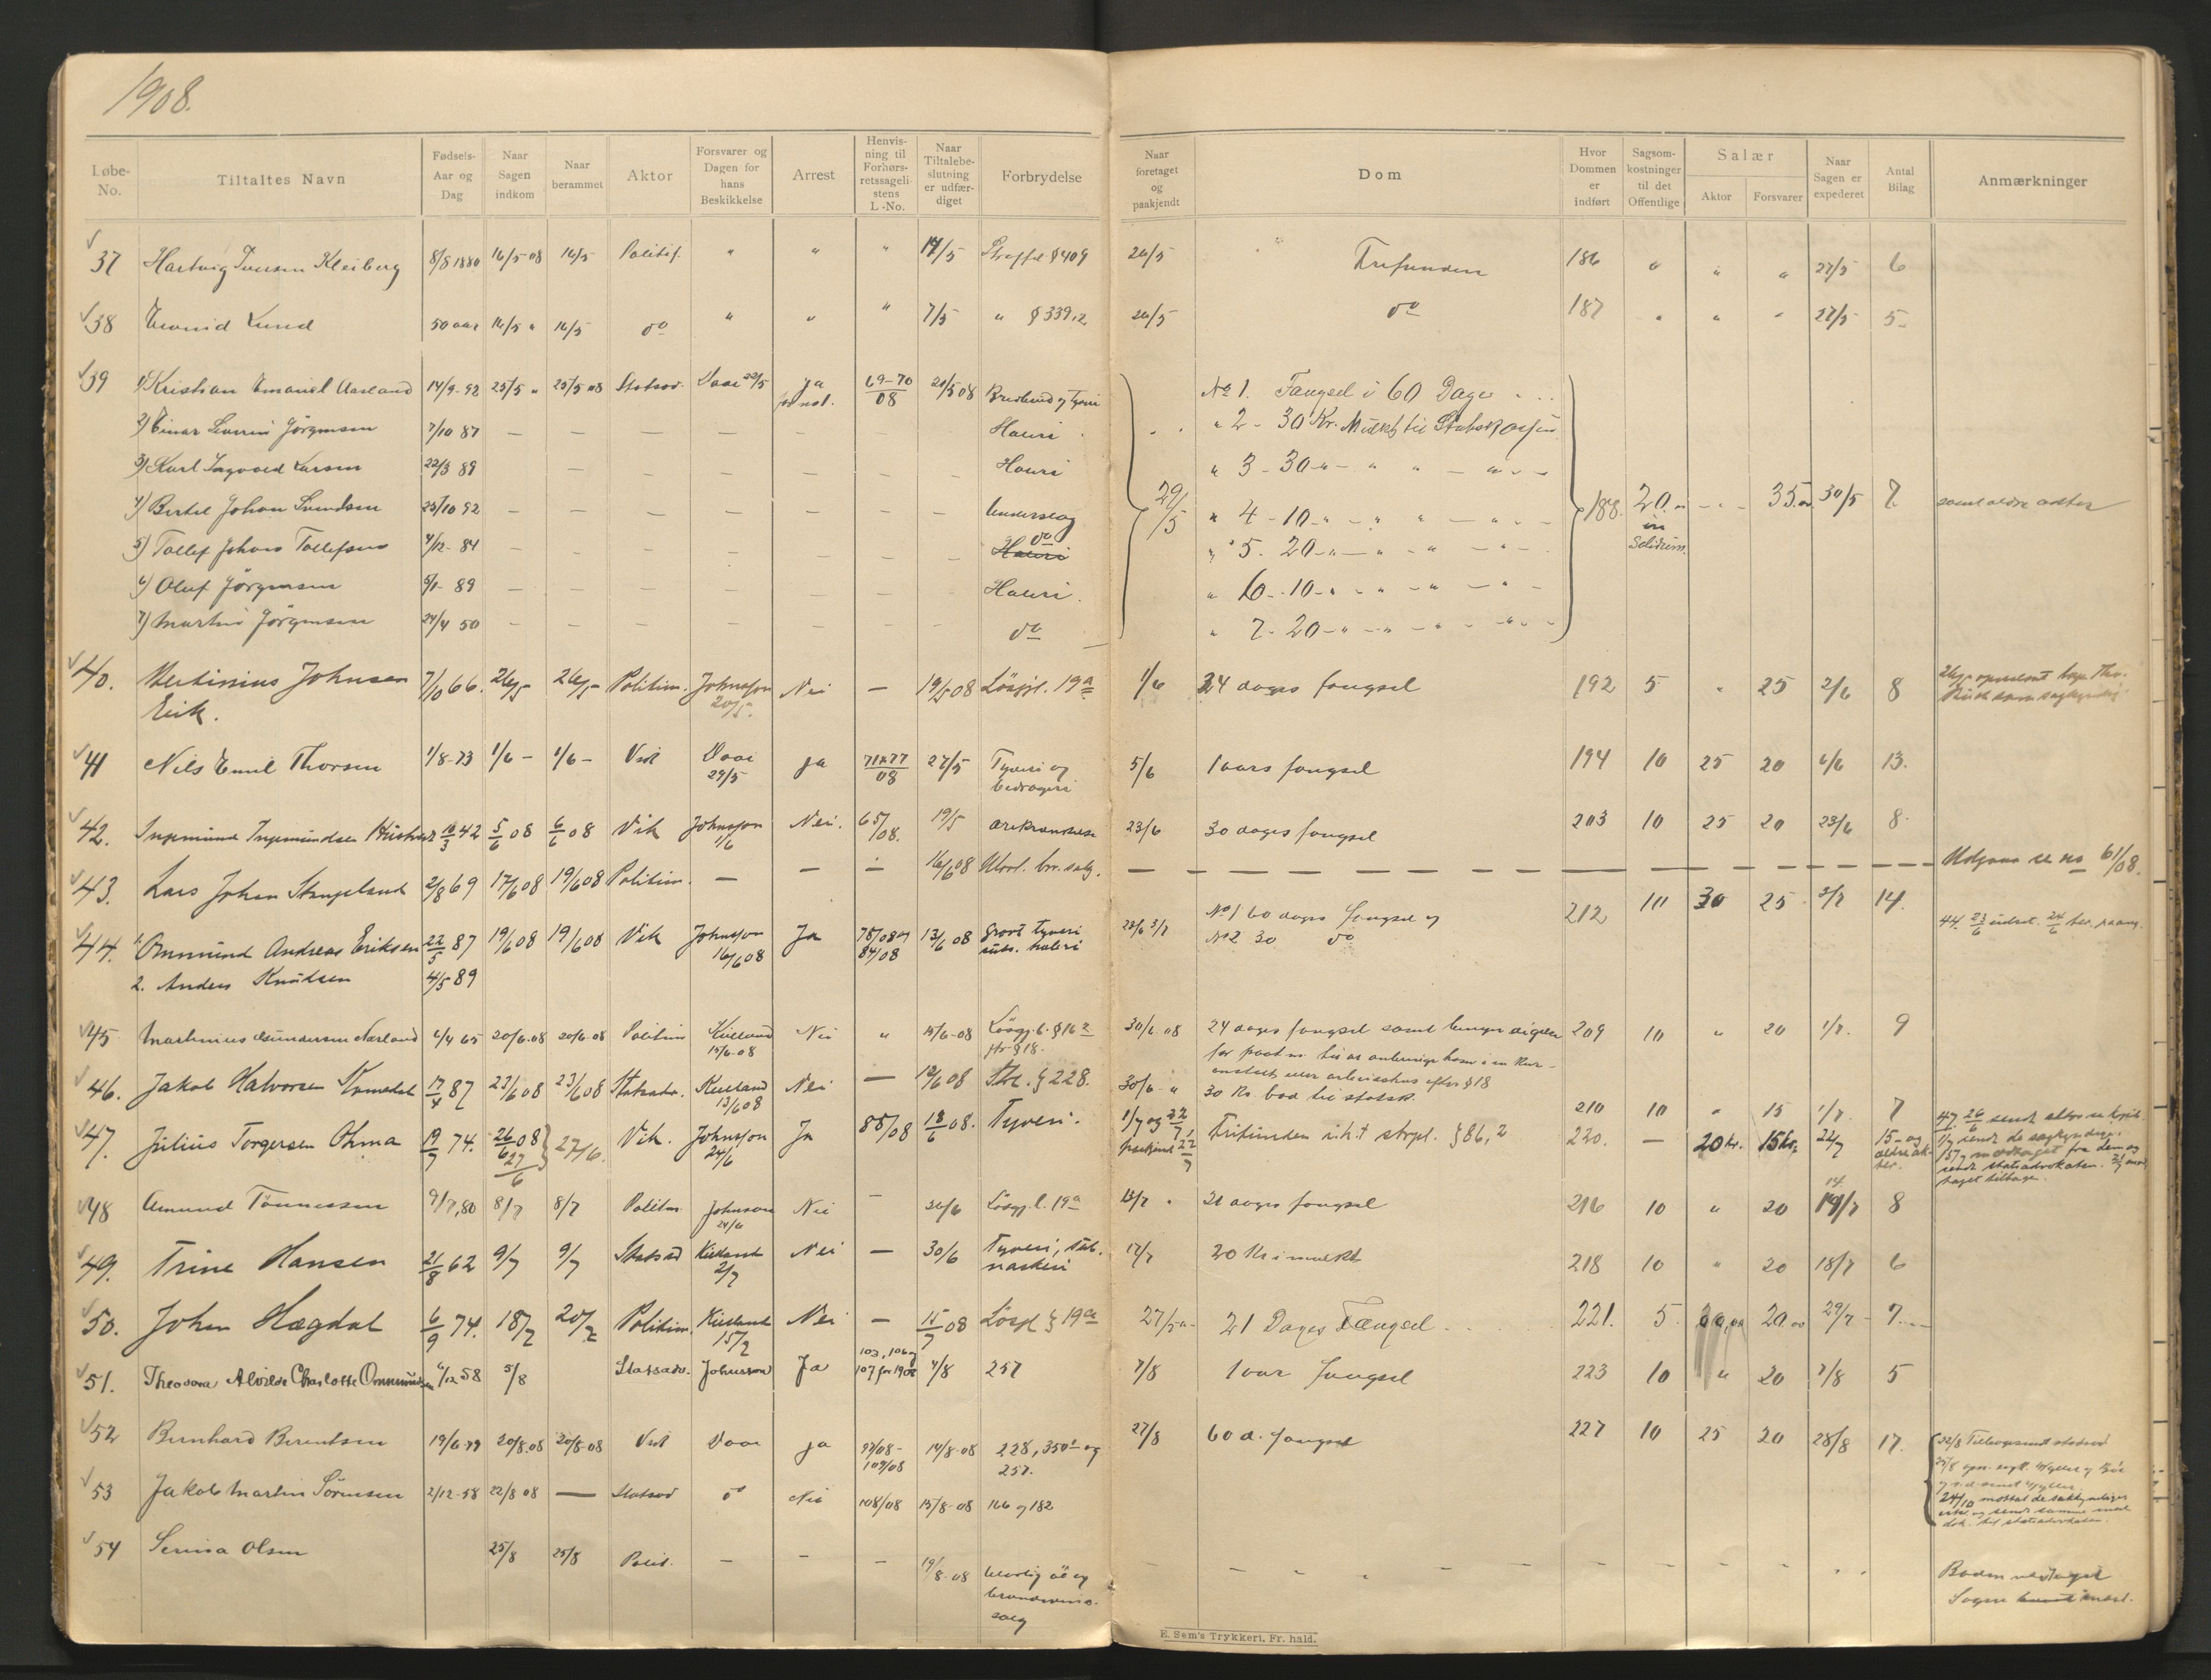 1908.
Løbe-No. Tiltaltes Navn Fødsels-Aar og Dag Naar Sagen indkom Naar berammet Aktor Forsvarer og Dagen for hans Beskikkelse Arrest Henvisning til Forhørsretssagelistens L.-No. Naar Tiltalebeslutning er udfærdiget Forbrydelse Naar foretaget og paakjendt Dom Hvor Dommen er indført Sagsomkostninger til det Offentlige Salær Aktor Forsvarer Naar Sagen er expederet Antal Bilag Anmærkninger
37 Hartvig Iversen Kleiberg 8/8 1880 16/5 08 16/5 Politif. " " " 14/5 Straffel §409 26/5 Frifunden 186 " " " 27/5 6
38 Lund 50 aar 16/5 " 16/5 do " " " 7/5 " §339,2 26/5 do 187 " " " 27/5 5
39 1) Kristian Emanuel Aarland 14/9-92 25/5 " 25/5 08 Statsad. Daae 22/5 Ja 69-70/08 21/5 08 og Tyveri No 1. Fængsel i 60 Dage
2) Einar Severin Jörgensen 7/10 87 — — — — — — — — Hæleri " 2 - 30 Kr. Mulkt til Statskassen
3) Karl Ingvald Larsen 22/3 89 — — — — — — — Hæleri " 3 - 30 - " - " "
4) Bertel Johan Svendsen 25/10 92 — — — — — — — — Underslag 29/5 " 4 - 10 - " - " " 188. 20. in Solidum. 35.00 30/5 7. samt ældre akter
5) Tollef Johan Tollefsen 4/12-84 — — — — — — — — Hæleri do " 5. 20 - " - "
6) Oluf Jörgensen 5/1-89 — — — — — — — Hæleri. " 6 - 10 - " - "
7) Martin Jörgensen 24/4 50 — — — — — — — — do " 7 - 20 - " - "
40. Martinius Johnsen Eik. 7/10 66. 26/5 26/5 Politim. Johnsson 20/5. Nei — 19/5 08 Lösgjl. 19a 1/6 24 dages fængsel 192 5 " 25 2/6 8
41 Nils Emil Thorsen 1/8-73 1/6 - 1/6 - Vik Daae 29/5 Ja 71 77/08 27/5 Tyveri og bedrageri 5/6 1 aars fængsel 194 10 25 20 6/6 13.
42. Ingemund Ingemundsen 10/3 42 5/6 08 6/6 08 Vik Johnsson 1/6 Nei. 65/08. 19/5 ærekrænkelse 23/6 30 dages fængsel 203 10 25 20 23/6 8
43. Lars Johan Stangeland 2/8 69 17/6 08 19/6 08 Politim. — — — 16/6 08 Ulovl. br. salg. — — — — — Udgaar se no 61/08.
44. 1. Ommund Andreas Eriksen 22/5 87 19/6 08 19/6 08 Vik Johnsson 16/6 08 Ja 78/08 og 84/08 13/6 08 grovt tyveri subs. hæleri 23/6 3/7 No 1 60 dages fængsel og No 2 30 do 212 10 30 25 3/7 14. 44. 23/6 udsat. 24/6 ber. paany.
2. Anders Knudsen 4/5 89
45 Martinius Gundersen Nærland 6/4 65 20/6-08 20/6-08 Politim Kielland 15/6-08 Nei " 15/6-08 Lösgj.l. §16 2 jfr §18. 30/6 08 24 dages fængsel samt
for paat.m. til at anbringe ham i en kur-
anstalt eller arbeidshus efter §18 209 10 " 20 1/7. 9
46. Jakob Halvorsen 17/4 87 23/6 08 23/6 08 Statsadv. Kielland 13/6 08 Nei — 12/6 08 Strl. §228. 30/6 - " 30 Kr bod til statsk. 210 10 " 15 1/7. 7
47. Julius Torgersen Ohma 19/7 74. 26/6 08 27/6 27/6. Vik. Johnsson 24/6 Ja 88/08 18/6 08. Tyveri. 1/7 og 22/7, paakjent 22/7 Frifunden i.h.t strpl. §86,2 220. — 20 kr. 15 kr. 22/7 15 - og ældre akter. 47. 26/6
1/7 sendt de sagkyndige.
15/7 modtaget fra dem og
sendt statsadvokaten. 21/7 mod
taget tilbage.
48 Amund Tönnessen 9/7,80 8/7 8/7 Politm. Johnson 24/6 Nei — 20/6 Lösgj.l. 19a 13/7 " 21 dages fængsel 216 10 " 20 14/7 8
49. Trine Hansen 21/8 62 9/7 9/7 Statsad Kielland 2/7 Nei — 30/6 Tyveri, sub. naskeri 17/7 20 Kr i mulkt 218 10 " 20 18/7 6
50. John Hægdal 6/9 74. 18/7 20/7 Politim. Kielland 15/7 Nei — 15/7 08 Lösgl. §19a 27/7 21 Dages Fængsel 221. 5 20.00 29/7 7
51. Theodora Alvilde Charlotte Ommundsen 6/12 58 5/8 Statsadv. Johnsson Ja 103, 106 og 107 for 1908 4/8 257 7/8 1 aar fængsel 223 10 " 20 7/8 5
52 Bernhard Berentsen 19/6-79 20/8.08 20/8-08 Vik Daae Ja 97/08 - 109/08 14/8-08 228, 350 og 257. 27/8 60 d. fængsel 227 10 25 20 28/8 17.
53 Jakob Martin Sörensen 2/12-58 22/8 08 — Statsad do Nei 108/08 15/8-08 166 og 182
24/10 mottat de sakkyndiges
erkl. og sendt samme med
dok. til statsadvokaten.
54 Serina Olsen 25/8 25/8 Polit. — — — 19/8-08 Ulovlig öl og brændevins. salg — — — — Boden vedtaget
E. Sem's Trykkeri, Fr. hald.